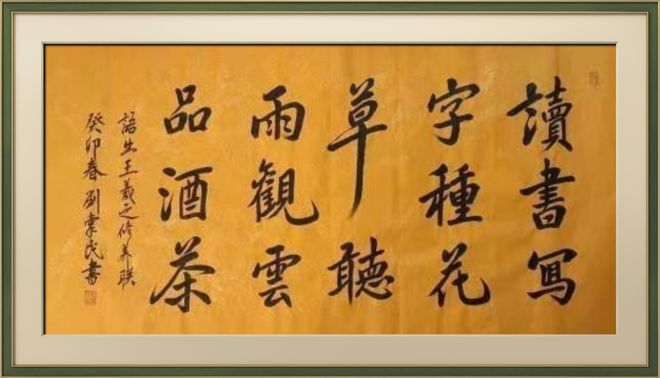 讀書寫
字種花
草聽
雨觀雲
品酒茶
語出王羲之修养联
癸卯春劉業民書